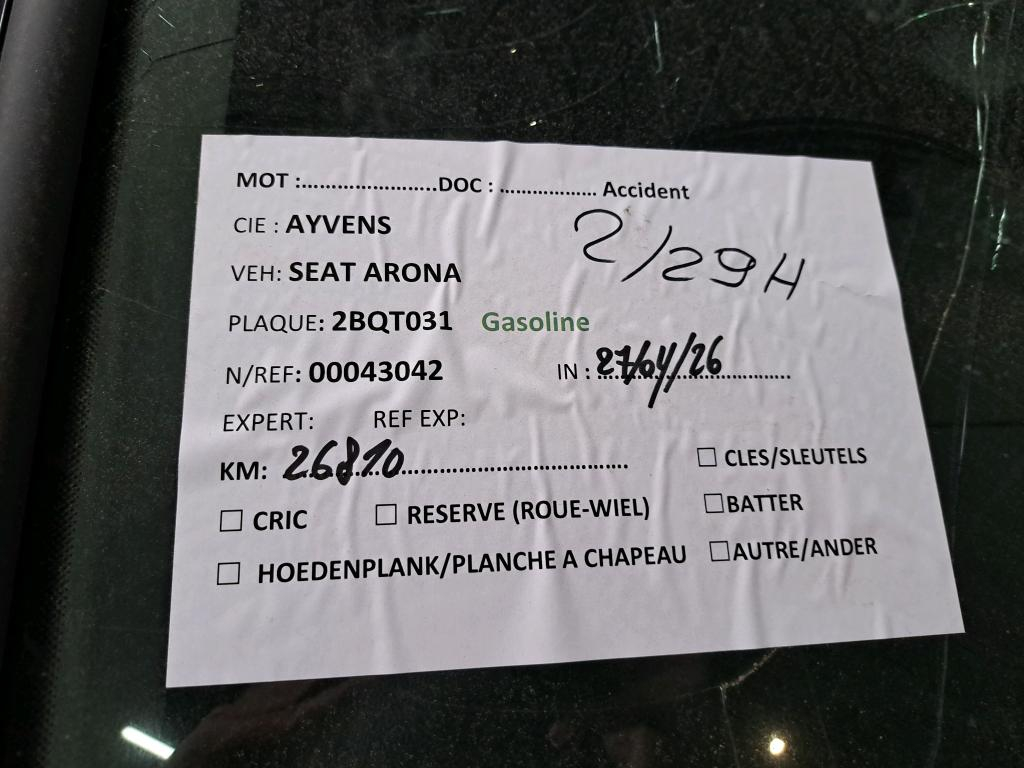 MOT :.......................DOC : ................. Accident
CIE : AYVENS
2/29H
VEH: SEAT ARONA
PLAQUE: 2BQT031 Gasoline
N/REF: 00043042 IN : 27/04/26
EXPERT: REF EXP:
KM: 26810
CLES/SLEUTELS
CRIC RESERVE (ROUE-WIEL) BATTER
HOEDENPLANK/PLANCHE A CHAPEAU AUTRE/ANDER